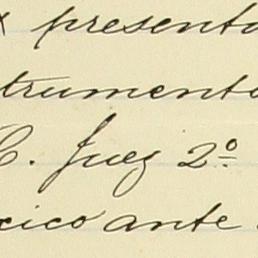 presenta
trumento
C. Juez 2º
xico ante